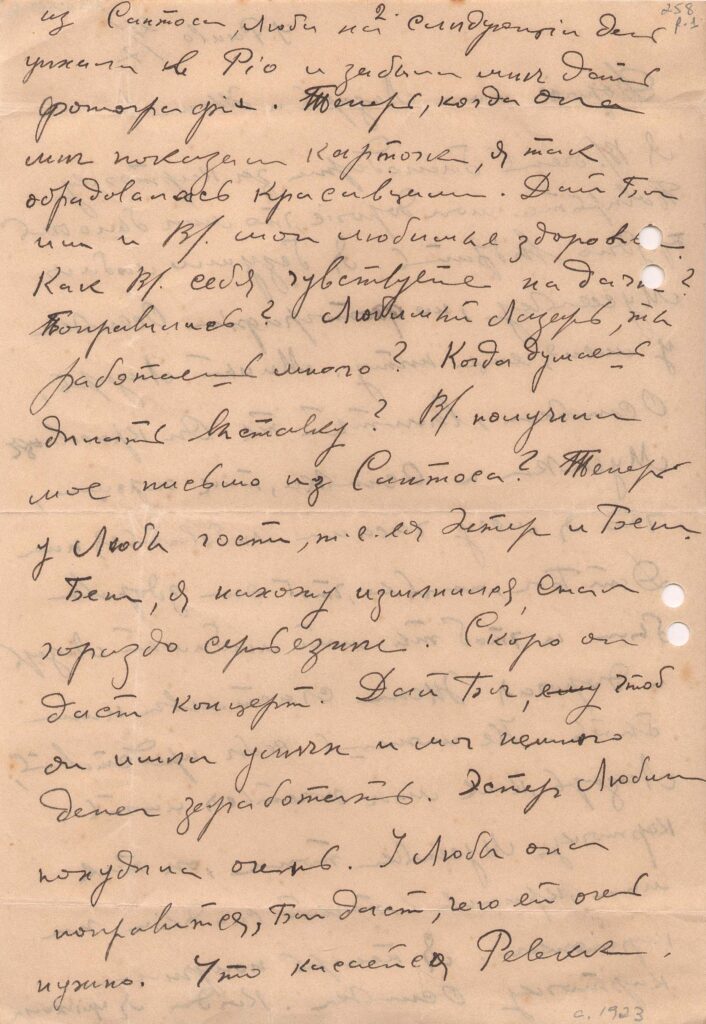 258
p.1
из Сантоса Люба на 2. слидующій день
уихали в Ріо и забыли мнъ дать
фотографіи. Теперь, когда она
мнъ показала карточки, я так
обрадовалась красавицами. Дай Бог
им и Вы мои любимые здоровья.
Как Вы себя чувствуете на дачи?
Поправились? Любимый Лазерь, ты
работаешь много? Когда думаешь
дилать виставку? Вы получили
мое письмо из Сантоса? Теперь
у Любы гости, т.е. Эстер и Бені.
Бені, я нахожу измінился, стал
гораздо серьезние. Скоро он
даст концерт. Дай Бог, ему чтоб
он имил успих и мог немного
денег заработать. Эстер Любина
похудила очень. У Любы она
поправится, Бог даст, чего ей очень
нужно. Что касается Ревекки.
c. 1923